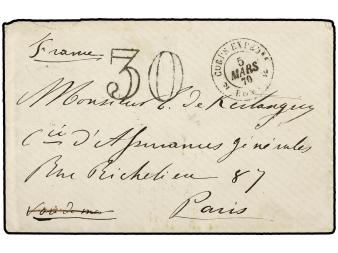 France
30
CORPS EXPED
5
MARS
70
Monsieur E. de Kerlanguy
Cie d'Assurances générales
Rue Richelieu 87
Paris